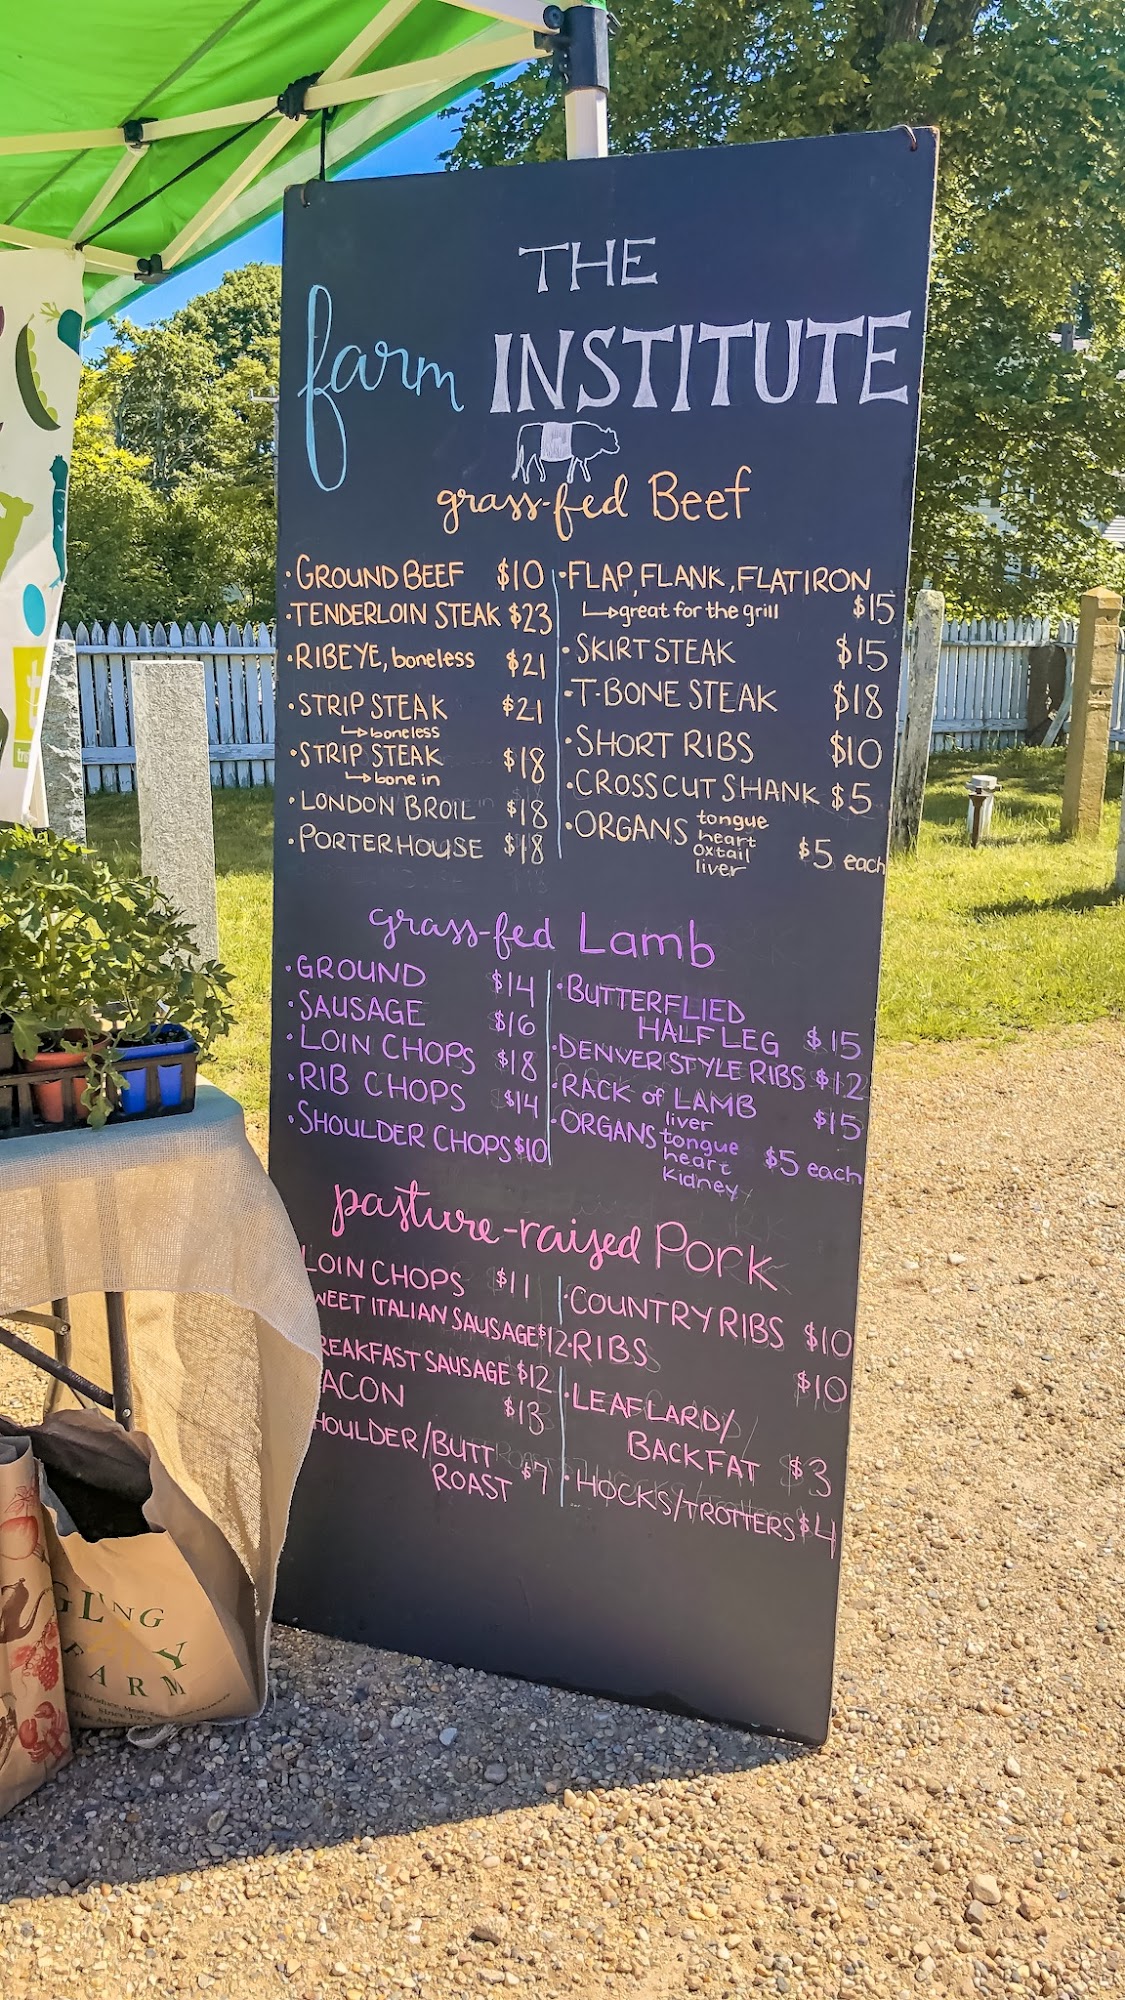 THE
farm INSTITUTE
grass-fed Beef
· GROUND BEEF $10
· TENDERLOIN STEAK $23
· RIBEYE, boneless $21
· STRIP STEAK $21
boneless
· STRIP STEAK $18
bone in
· LONDON BROIL $18
· PORTERHOUSE $18
· FLAP, FLANK, FLATIRON
great for the grill $15
· SKIRT STEAK $15
· T-BONE STEAK $18
· SHORT RIBS $10
· CROSS CUT SHANK $5
· ORGANS tongue
heart
oxtail $5 each
liver
grass-fed Lamb
· GROUND $14
· SAUSAGE $16
· LOIN CHOPS $18
· RIB CHOPS $14
· SHOULDER CHOPS $10
· BUTTERFLIED
HALF LEG $15
· DENVER STYLE RIBS $12
· RACK of LAMB $15
· ORGANS liver
tongue
heart $5 each
kidney
pasture-raised Pork
LOIN CHOPS $11
WEET ITALIAN SAUSAGE $12
REAKFAST SAUSAGE $12
ACON $13
HOULDER/BUTT
ROAST $7
· COUNTRY RIBS $10
· RIBS $10
· LEAF LARD/
BACKFAT $3
· HOCKS/TROTTERS $4
GLING
FARM
Since